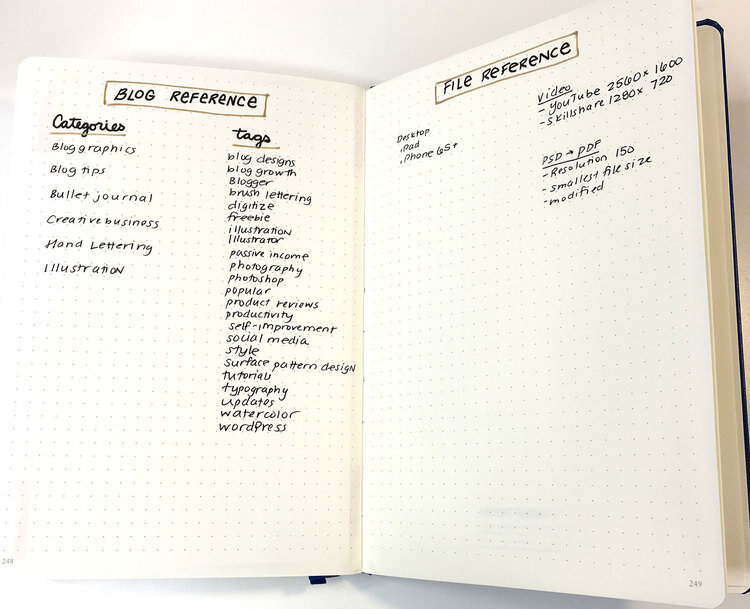 BLOG REFERENCE
Categories
Blog graphics
Blog tips
Bullet journal
Creative business
Hand Lettering
Illustration
tags
blog designs
blog growth
Blogger
brush lettering
digitize
freebie
illustration
Illustrator
passive income
photography
photoshop
popular
product reviews
productivity
self-improvement
social media
style
surface pattern design
tutorials
typography
updates
watercolor
wordpress
248
FILE REFERENCE
Desktop
iPad
iPhone 6s+
Video
- YouTube 2560 x 1600
- Skillshare 1280 x 720
PSD → PDF
- Resolution 150
- smallest file size
- modified
249